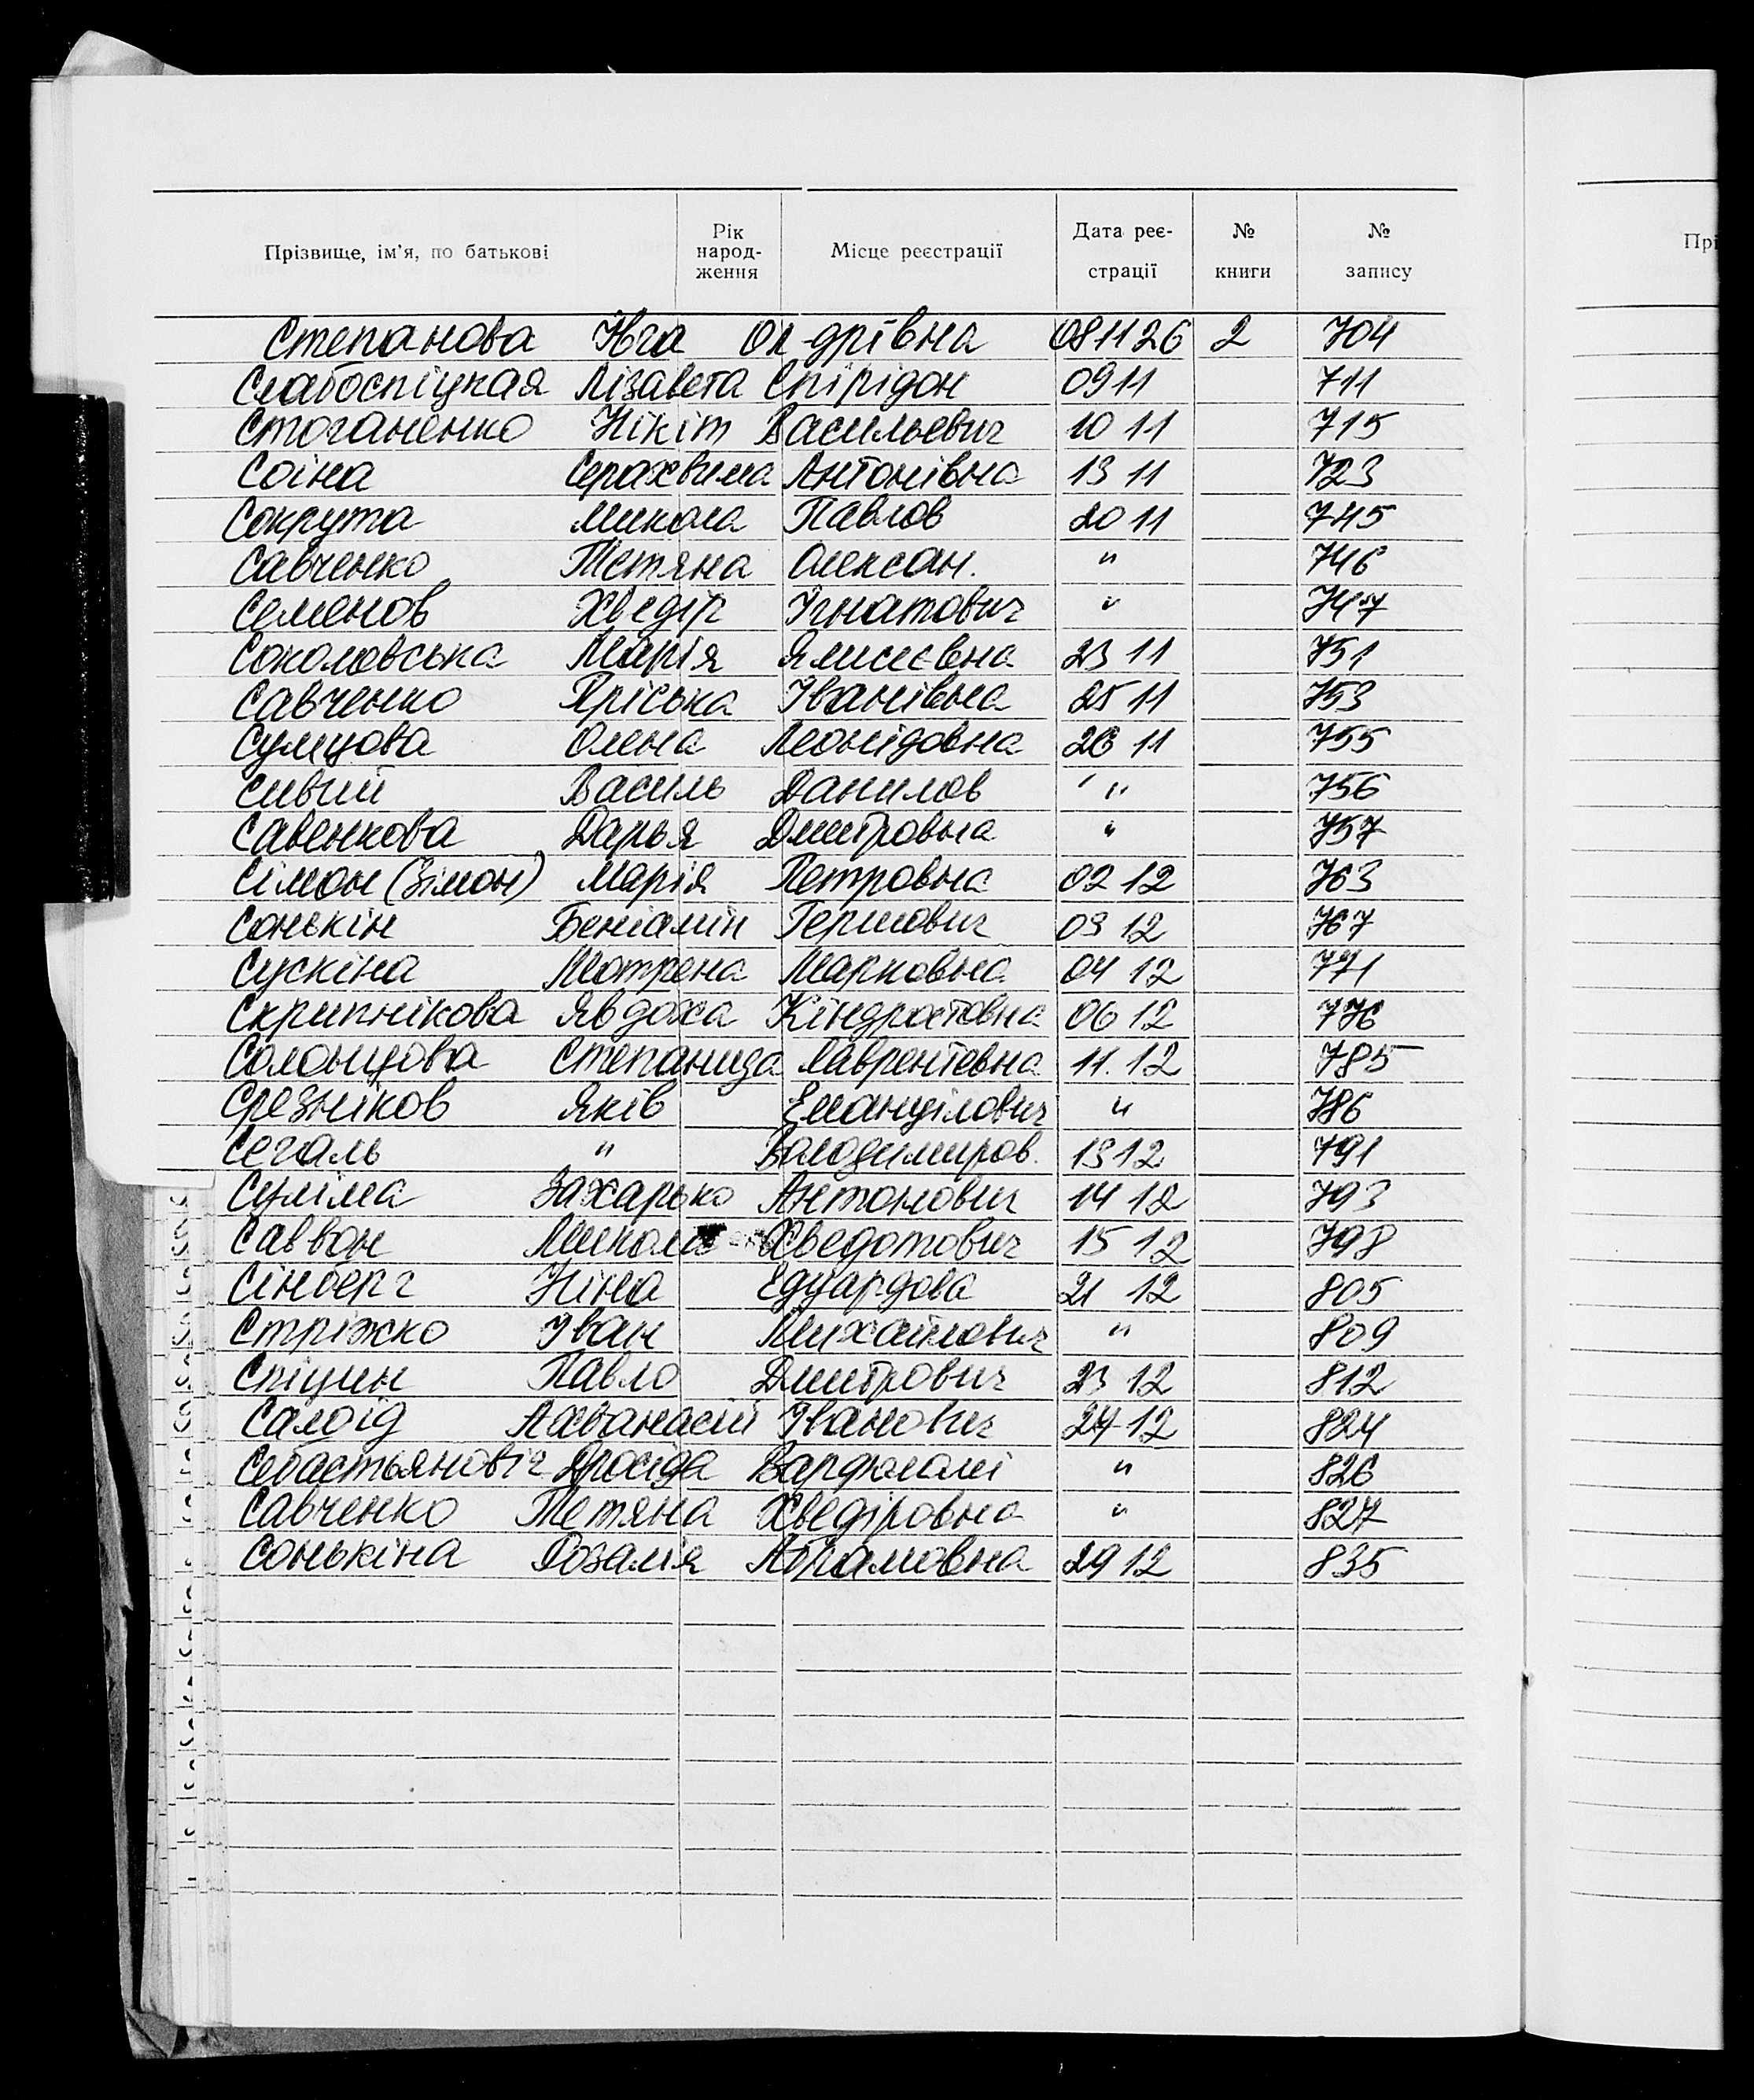 Прізвище, ім'я, по батькові Рік народ-ження Місце реєстрації Дата реє-страції № книги № запису
Прі
Степанова Нга Ол-дрівна 081126 2 704
Слабоспіцкая Лізавета Спірідон 0911 711
Стоганенко Нікіт Васильевич 10 11 715
Соіна Серахвима Антонівна 13 11 723
Сокрута Микола Павлов 20 11 745
Савченко Тетяна Олексан. " 746
Семенов Хведір Ігнатович " 747
Соколовська Марія 23 11 751
Савченко Пріська Іванівна 25 11 753
Сумцова Олена Леонідовна 26 11 755
Сивий Василь Данилов " 756
Савенкова Дарья Дмитровна " 757
Сімон (Зімон) Марія Петровна 02 12 763
Сонькін Беніамін Гершович 03 12 767
Сускіна Мотрена Марковна 04 12 771
Скрипнікова Явдоха Кіндратовна 06 12 776
Солонцова Степанида Лаврентевна 11.12 785
Срезніков Яків Емануілович " 786
Сегаль " Володимиров. 1312 791
Суліма Захарько Антонович 14 12 793
Саввон Микола Хведотович 15 12 798
Сінберг Ніна Едуардова 21 12 805
Стріжко Іван Михайлович " 809
Спіцин Павло Дмитрович 23 12 812
Салоїд Ахванасій Іванович 24 12 824
Себастьяновіч Дросіда Варфмалі " 826
Савченко Тетяна Хведіровна " 827
Сонькіна Розалія Абрамовна 29 12 835